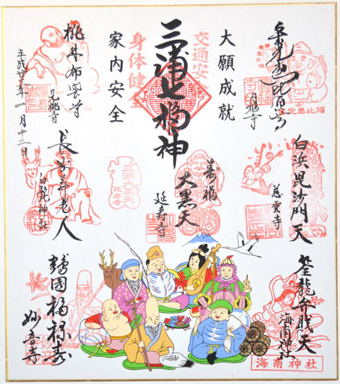 白浜毘沙門天
慈雲寺
筌龍弁財天
海南神社
海南神社
大願成就
交通安
三浦七福神
身体健全
家内安全
寿福
大黒天
延寿寺
桃林布袋尊
見桃寺
平成廿一年一月十二日
長安寿老人
白髭神社
鶴園福禄寿
妙音寺